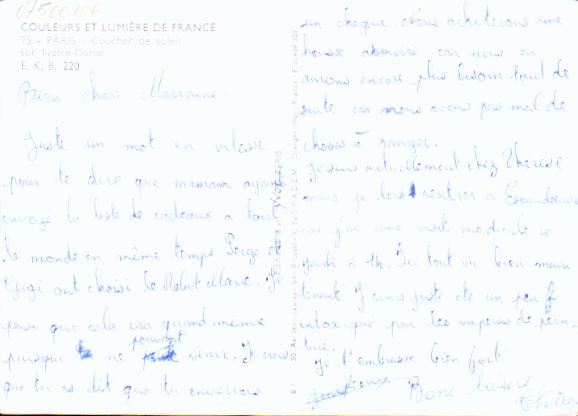 COULEURS ET LUMIÈRE DE FRANCE
75 - PARIS - Coucher de soleil
sur Notre-Dame
E. K. B. 220
Bien chère Marraine.
Juste un mot en vitesse
pour te dire que maman ayant
envoyé la liste de cadeaux a tout
le monde en même temps Serge et
Gigi ont choisi le Robot Marie. Je
pense que cela ira quand même
puisqu' ne pouvant venir. Je crois
que tu as dit que tu enverrais
un cheque. Nous acheterons une
housse armoire car nous en
aurons encore plus besoin tout de
suite car nous avons pas mal de
choses à ranger.
Je suis actuellement chez Thérèse
mais je dois rentrer a
car j'ai une visite medicale ce
jeudi à h. Ici tout va bien main
tenant. J'avais juste été un peu
intoxiqué par les vapeurs de pein-
ture.
Je t'embrasse bien fort
Bons baisers